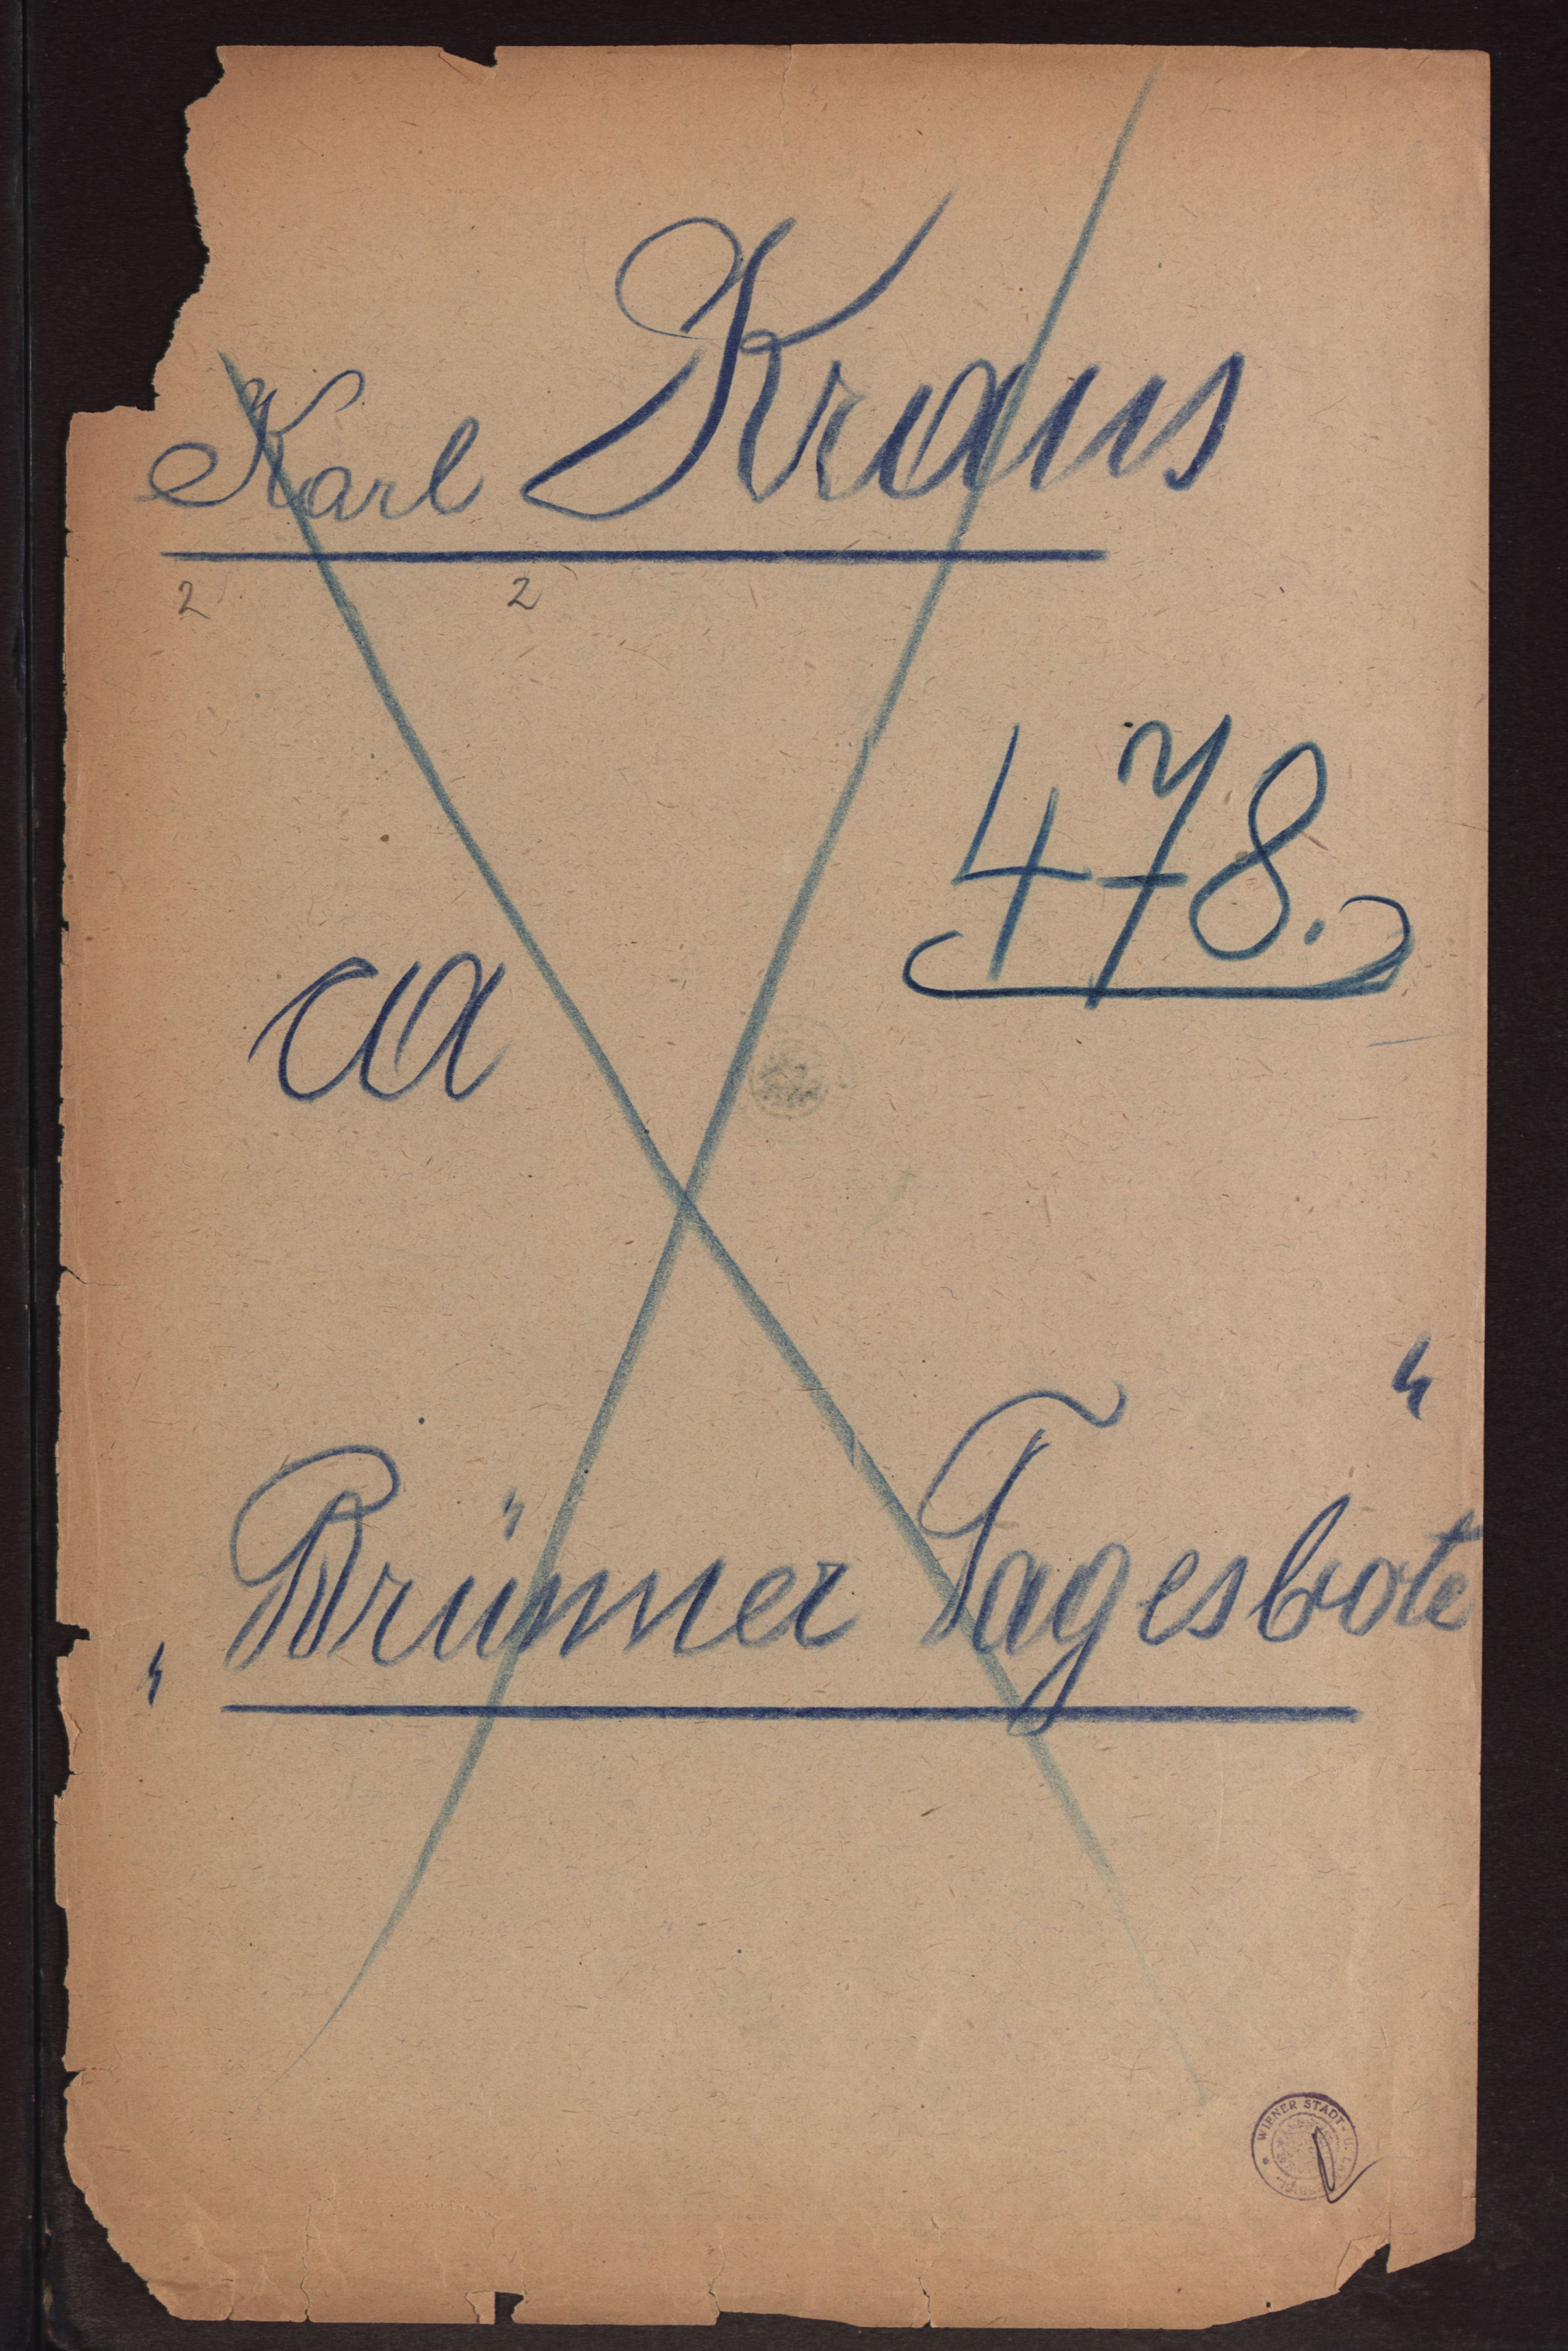 Karl Kraus
2 2
478.
ca
„Brünner Tagesbote“
WIENER STADT-